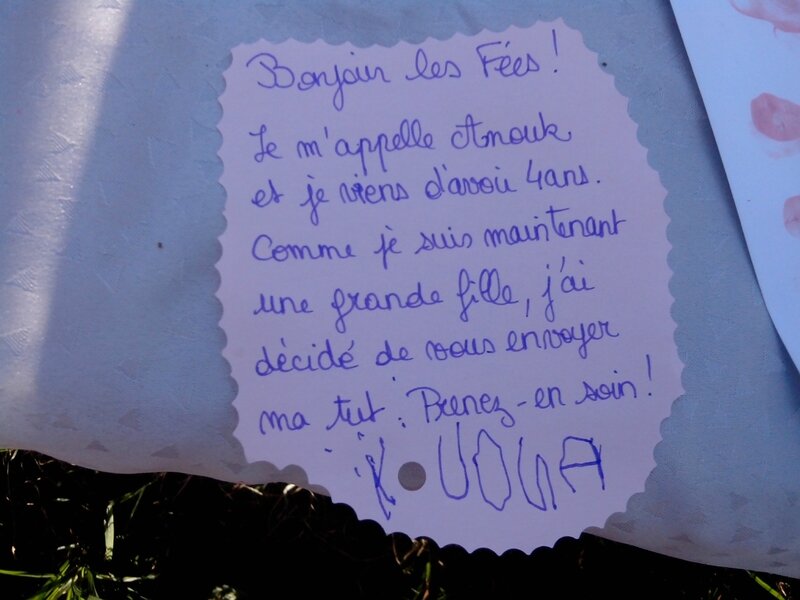 Bonjour les Fées !
Je m'appelle Anouk
et je viens d'avoir 4ans.
Comme je suis maintenant
une grande fille, j'ai
décidé de vous envoyer
ma tut. Prenez-en soin !
K UONA